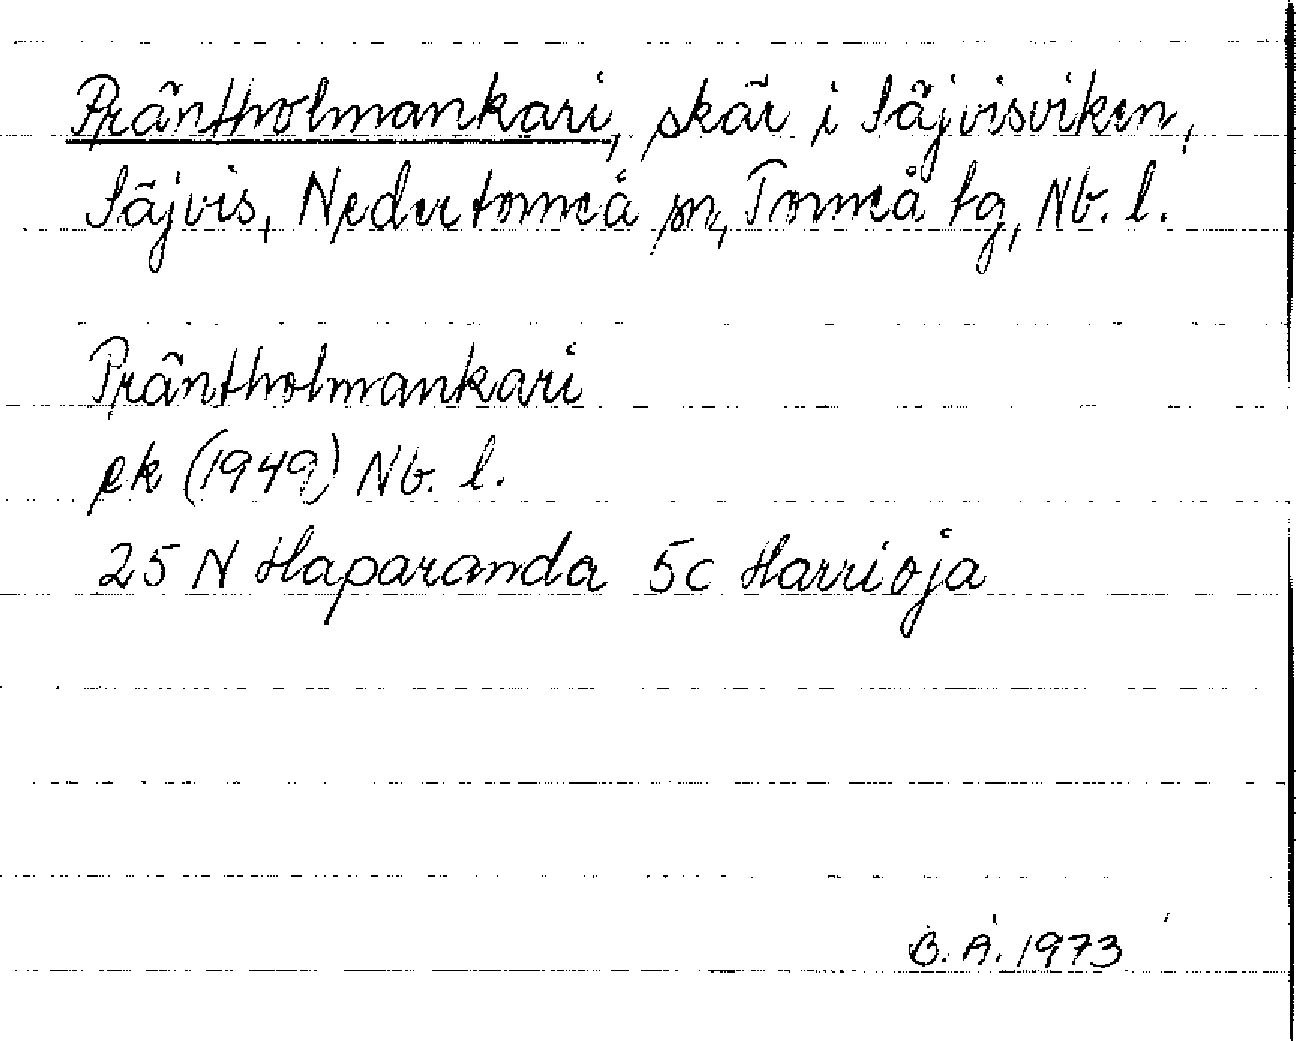 Präntholmankari, skär i Säjvisviken,
Säjvis, Nedertorneå sn, Torneå tg, Nb. l.
Präntholmankari
ek (1949) Nb. l.
25 N Haparanda 5c Harrioja
B. Å. 1973